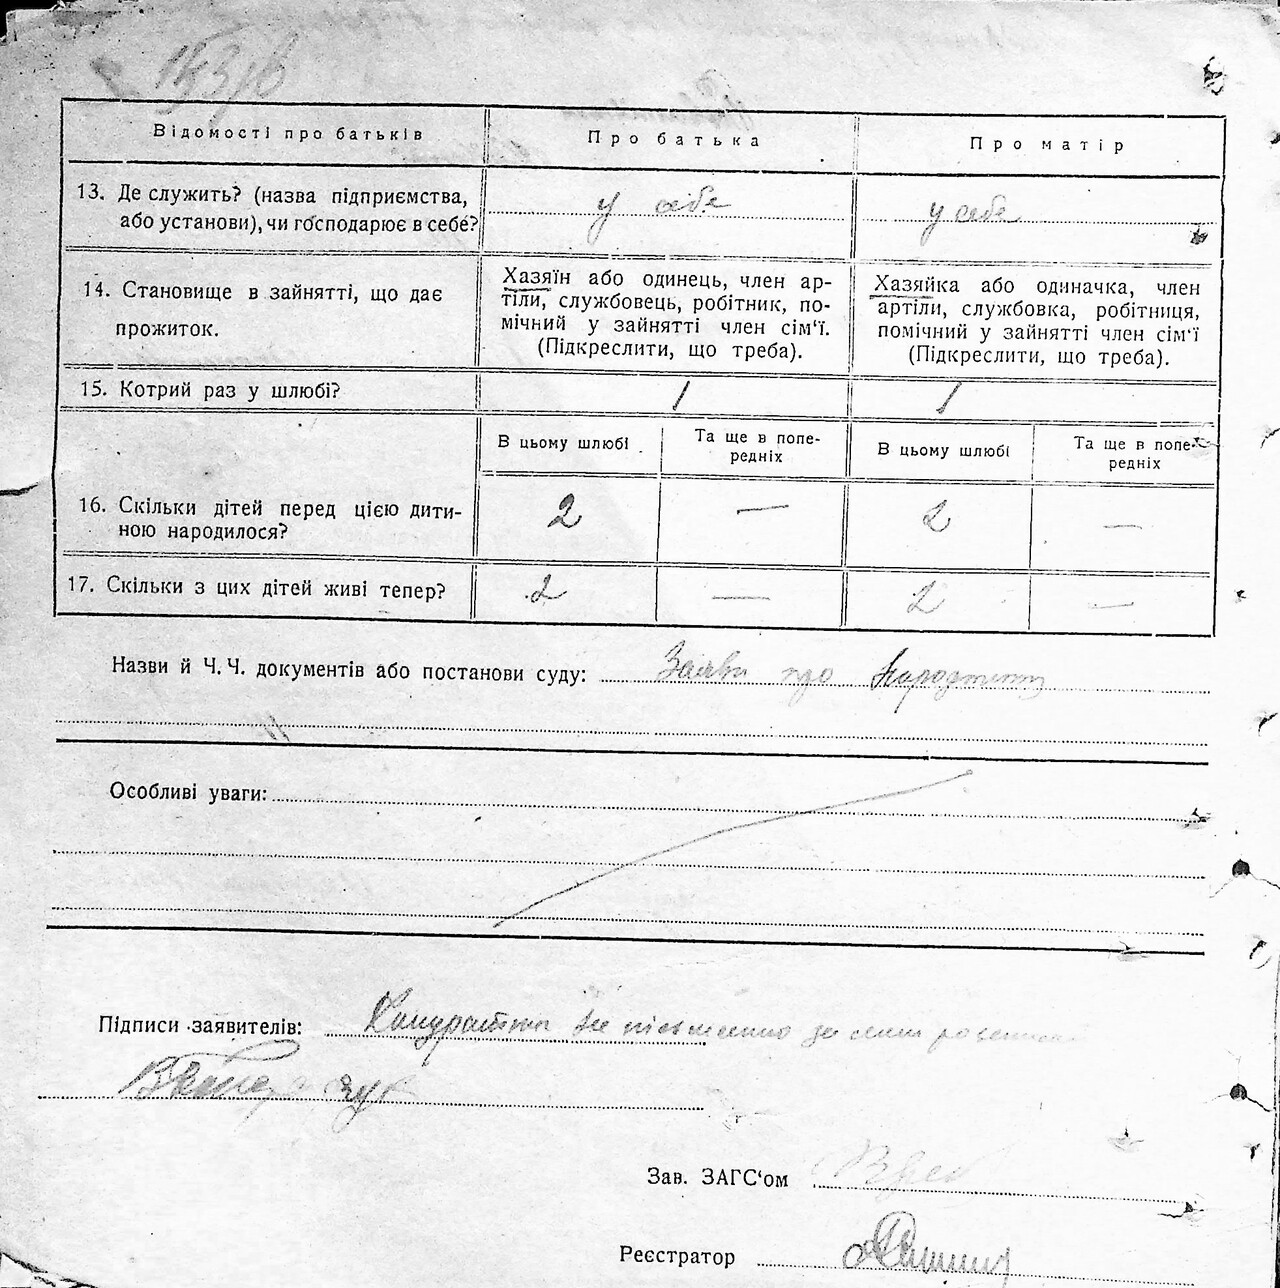 Відомості про батьків Про батька Про матір
13. Де служить? (назва підприємства, або установи), чи господарює в себе? у себе у себе
14. Становище в зайнятті, що дає прожиток.
Хазяїн або одинець, член ар-
тіли, службовець, робітник, по-
мічний у зайнятті член сім'ї.
(Підкреслити, що треба).
Хазяйка або одиначка, член
артіли, службовка, робітниця,
помічний у зайнятті член сім'ї
(Підкреслити, що треба).
15. Котрий раз у шлюбі? 1 1
В цьому шлюбі Та ще в попе-
редніх В цьому шлюбі Та ще в попе-
редніх
16. Скільки дітей перед цією дити-
ною народилося? 2 — 2 —
17. Скільки з цих дітей живі тепер? 2 — 2 —
Назви й Ч. Ч. документів або постанови суду: Заява про
Особливі уваги:
Підписи заявителів:
Зав. ЗАГС'ом
Реєстратор